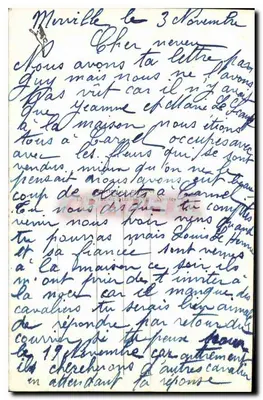 Merville le 3 Novembre
Cher neveu
Nous avons ta lettre par
guy mais nous ne l'avons
pas vit car il n'y avait
que Jeanne et Marie
à la maison nous étions
tous à occupés avec
avec les fleurs qui se sont
vendus mieux que on ne le
pensait nous avons eut
coup de clients à
Tu nous dit que tu comptes
venir nous voir viens quand
tu pourras mais Louis
et sa fiancée sont venus
à la maison ce soir ils
m'ont prier de t'inviter à
la noce car il manque des
cavaliers tu serais bien aimable
de répondre par retour du
courrier si tu peux pour
le 19 Novembre car autrement
ils chercherons d'autres cavalier
en attendant ta réponse